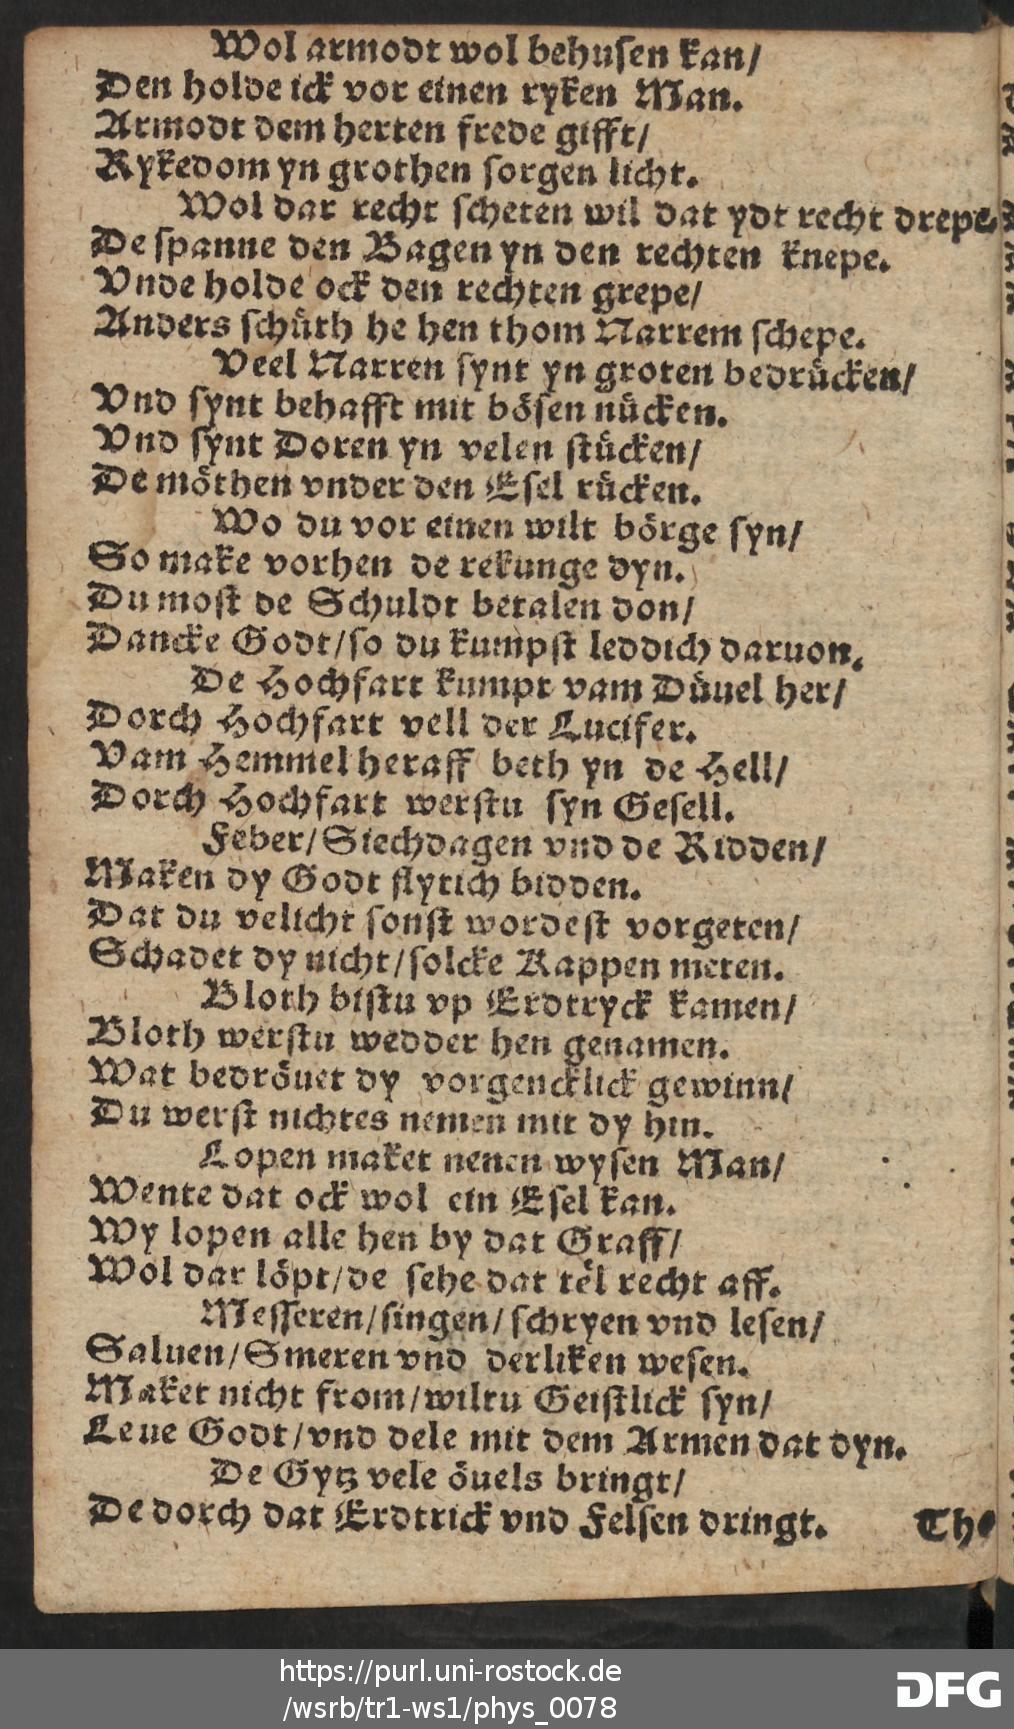 Wol armodt wol behusen kan/
Den holde ick vor einen ryken Man.
Armodt dem herten frede gifft/
Rykedom yn grothen sorgen licht.
Wol dar recht scheten wil dat ydt recht drepe.
De spanne den Bagen yn den rechten knepe.
Vnde holde ock den rechten grepe/
Anders schüth he hen thom Narrem schepe.
Veel Narren synt yn groten bedrücken/
Vnd synt behafft mit bösen nücken.
Vnd synt Doren yn velen stücken/
De möthen vnder den Esel rücken.
Wo du vor einen wilt börge syn/
So make vorhen de rekunge dyn.
Du most de Schuldt betalen don/
Dancke Godt/so du kumpst leddich daruon.
De Hochfart kumpt vam Düuel her/
Dorch Hochfart vell der Lucifer.
Vam Hemmel heraff beth yn de Hell/
Dorch Hochfart werstu syn Gesell.
Feber/Siechdagen vnd de Ridden/
Maken dy Godt flytich bidden.
Dat du velicht sonst wordest vorgeten/
Schadet dy nicht/solcke Kappen meten.
Bloth bistu vp Erdtryck kamen/
Bloth werstu wedder hen genamen.
Wat bedröuet dy vorgencklick gewinn/
Du werst nichtes nemen mit dy hin.
Lopen maket nenen wysen Man/
Wente dat ock wol ein Esel kan.
Wy lopen alle hen by dat Graff/
Wol dar löpt/de sehe dat tel recht aff.
Messeren/singen/schryen vnd lesen/
Saluen/Smeren vnd derliken wesen.
Maket nicht from/wiltu Geistlick syn/
Leue Godt/vnd dele mit dem Armen dat dyn.
De Gytz vele öuels bringt/
De dorch dat Erdtrick vnd Felsen dringt.
The
https://purl.uni-rostock.de
/wsrb/tr1-ws1/phys_0078
DFG